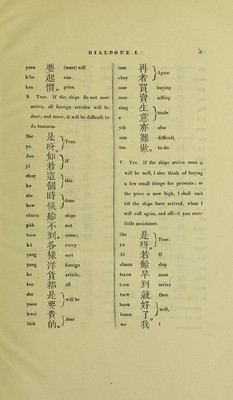 DIALOGUE I. 5
yaou 要 (want) will
k'he 起 rise.
kea 價。 price.
S. True. If the ships do not now
arrive, all foreign articles will be
dear; and more, it will be difficult to
do business.
She 是
ya. 呀。 True.
Joo 如
jŏ 若 If
chay 這
ko 個 this
she 時
how 候 time
chuen 船 ships
pŭh 不 not
taou 到, come,
kŏ 各 every
yang 樣 sort
yang 洋 foreign
ho 貨 article,
too 都 all
she 是
yaou 要 will be
kwei 貴
的。 dear.
tsae 再
chay 者 Again
mae 買 buying
mae 賣 selling
生
e 意 trade
yih 亦 also
nan 難 difficult
tso 做。 to do.
V. Yes. If the ships arrive soon it
will be well, I also think of buying
a few small things for presents: as
the price is now high, I shall wait
till the ships have arrived, when I
will call again, and afford you some
little assistance.
She 是
ya. 呀。 True.
Jŏ 若 If
chuen 船 ship
tsaou 早 soon
taou 到 arrive
tsew 就 then
haou 好
leaou 了。 well,
wo 我 I